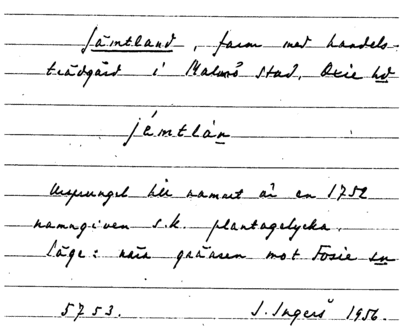 Jämtland, farm med handels-
trädgård i Malmö stad, Oxie hd
jémtlán
Ursprunget till namnet är en 1752
namngiven s.k. plantagelycka.
Läge: nära gränsen mot Fosie sn
5753. I. Ingers 1956.